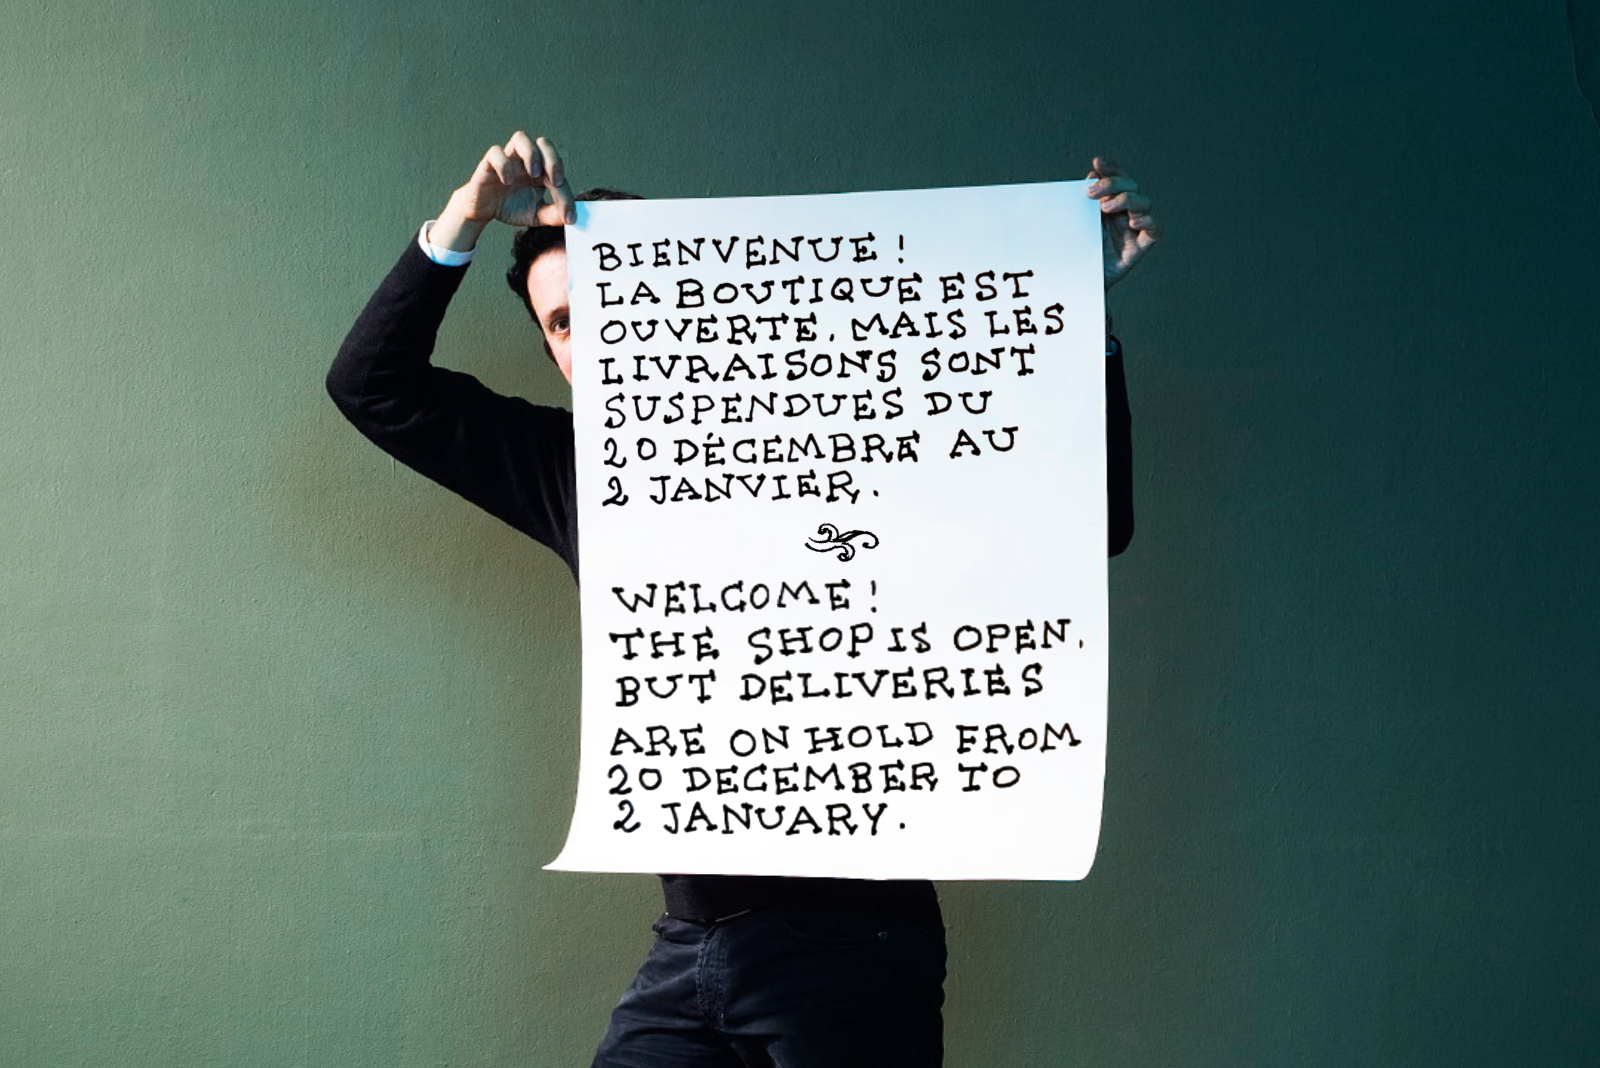 BIENVENUE !
LA BOUTIQUE EST
OUVERTE, MAIS LES
LIVRAISONS SONT
SUSPENDUES DU
20 DÉCEMBRE AU
2 JANVIER.
WELCOME !
THE SHOP IS OPEN,
BUT DELIVERIES
ARE ON HOLD FROM
20 DECEMBER TO
2 JANUARY.